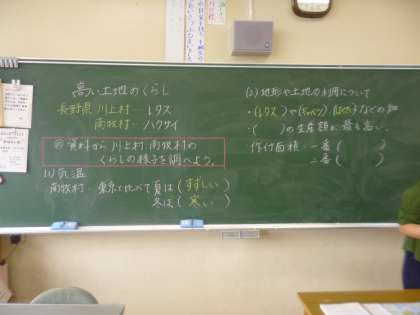 高い土地のくらし
長野県 川上村…レタス
南牧村…ハクサイ
資料から川上村、南牧村の
くらしの様子を調べよう。
(1)気温
南牧村…東京と比べて夏は(すずしい)
冬は(寒い)
(2)地形や土地の利用について
・(レタス)や(キャベツ)(はくさい)などの畑
・(　　)の生産額が最も高い。
作付面積…一番(　　)
二番(　　)